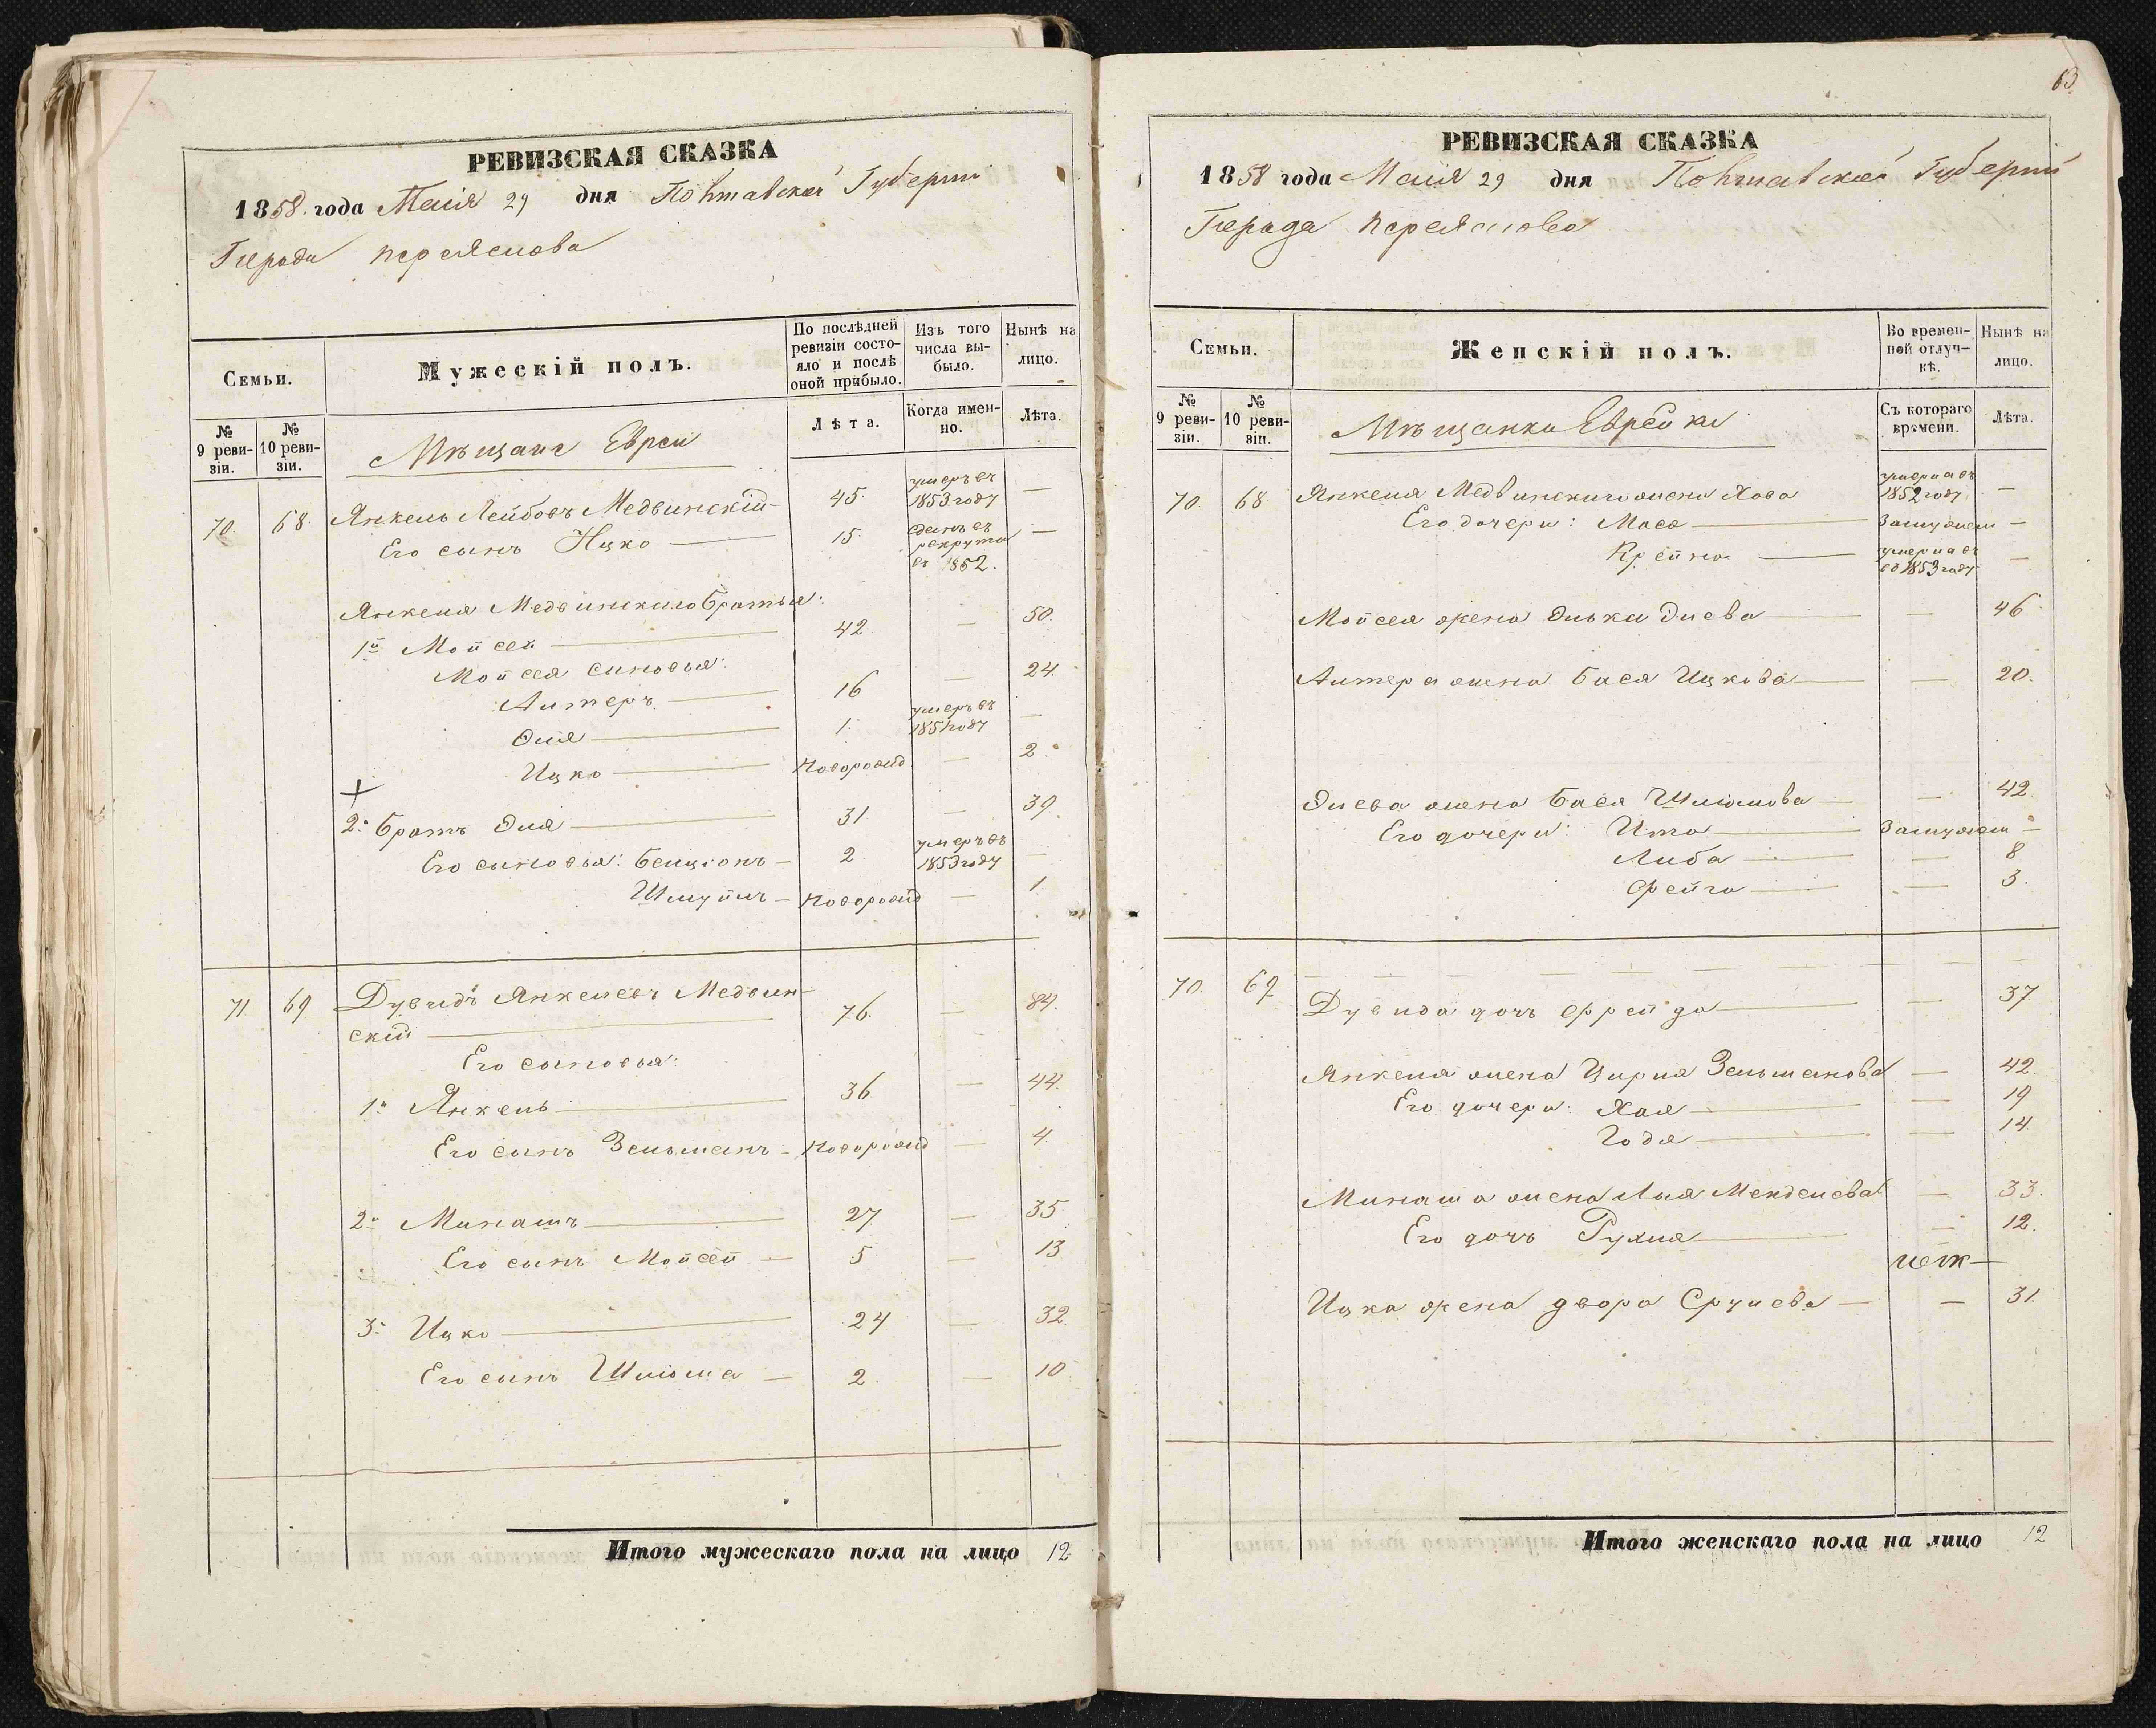 РЕВИЗСКАЯ СКАЗКА
1858. года Маія 29 дня Полтавской Губерніи
Города Переяслова
Семьи.
Мужескій полъ.
По послѣдней ревизіи состояло и послѣ оной прибыло.
Изъ того числа выбыло.
Нынѣ на лицо.
№ 9 ревизіи.
№ 10 ревизіи.
Мѣщане Евреи
Лѣта.
Когда именно.
Лѣта.
70. 68. Янкель Лейбовъ Медвинскій — 45. умеръ въ 1853 году —
Его сынъ Ицко — 15. сданъ въ рекруты въ 1852. —
Янкеля Медвинскаго братья:
1й Мойсей — 42. — 50.
Мойсея сыновья:
Алтеръ — 16 — 24.
Эля — 1. умеръ въ 1851 году —
Ицко — новорожд — 2.
2й братъ Эля — 31. — 39.
Его сыновья: Бенціонъ — 2. умеръ въ 1853 году —
Шмуйлъ — новорожд — 1.
71. 69. Дувидъ Янкелевъ Медвин-
скій — 76. — 84.
Его сыновья:
1й Янкель — 36. — 44.
Его сынъ Зельманъ — новорожд — 4.
2й Минашъ — 27 — 35
Его сынъ Мойсей — 5 — 13
3й Ицко — 24 — 32.
Его сынъ Шліома — 2. — 10
Итого мужескаго пола на лицо 12
63.
РЕВИЗСКАЯ СКАЗКА
1858 года Маія 29 дня Полтавской Губерніи
Города Переяслова
Семьи.
Женскій полъ.
Во временной отлучкѣ.
Нынѣ на лицо.
№ 9 ревизіи.
№ 10 ревизіи.
Мѣщанки Еврейки
Съ котораго времени.
Лѣта.
70. 68. Янкеля Медвинскаго жена Хава умерла въ 1852 году —
Его дочери: Мася — Замужем —
Крейна — умерла въ 1853 году —
Мойсея жена Элька Элева — — 46.
Алтера жена Бася Ицкова — — 20.
Элева жена Бася Шліомова — — 42.
Его дочери: Ита — Замужем —
Либа — — 8
Фейга — — 3.
70. 69. Дувида дочь Фрейда — — 37
Янкеля жена Цирля Зельманова — 42.
Его дочери: Хая — — 19
Годя — — 14.
Минаша жена Лия Менделева — 33.
Его дочь Рухля — — 12.
Ицка жена Двора Срулева — — 31.
Итого женскаго пола на лицо 12